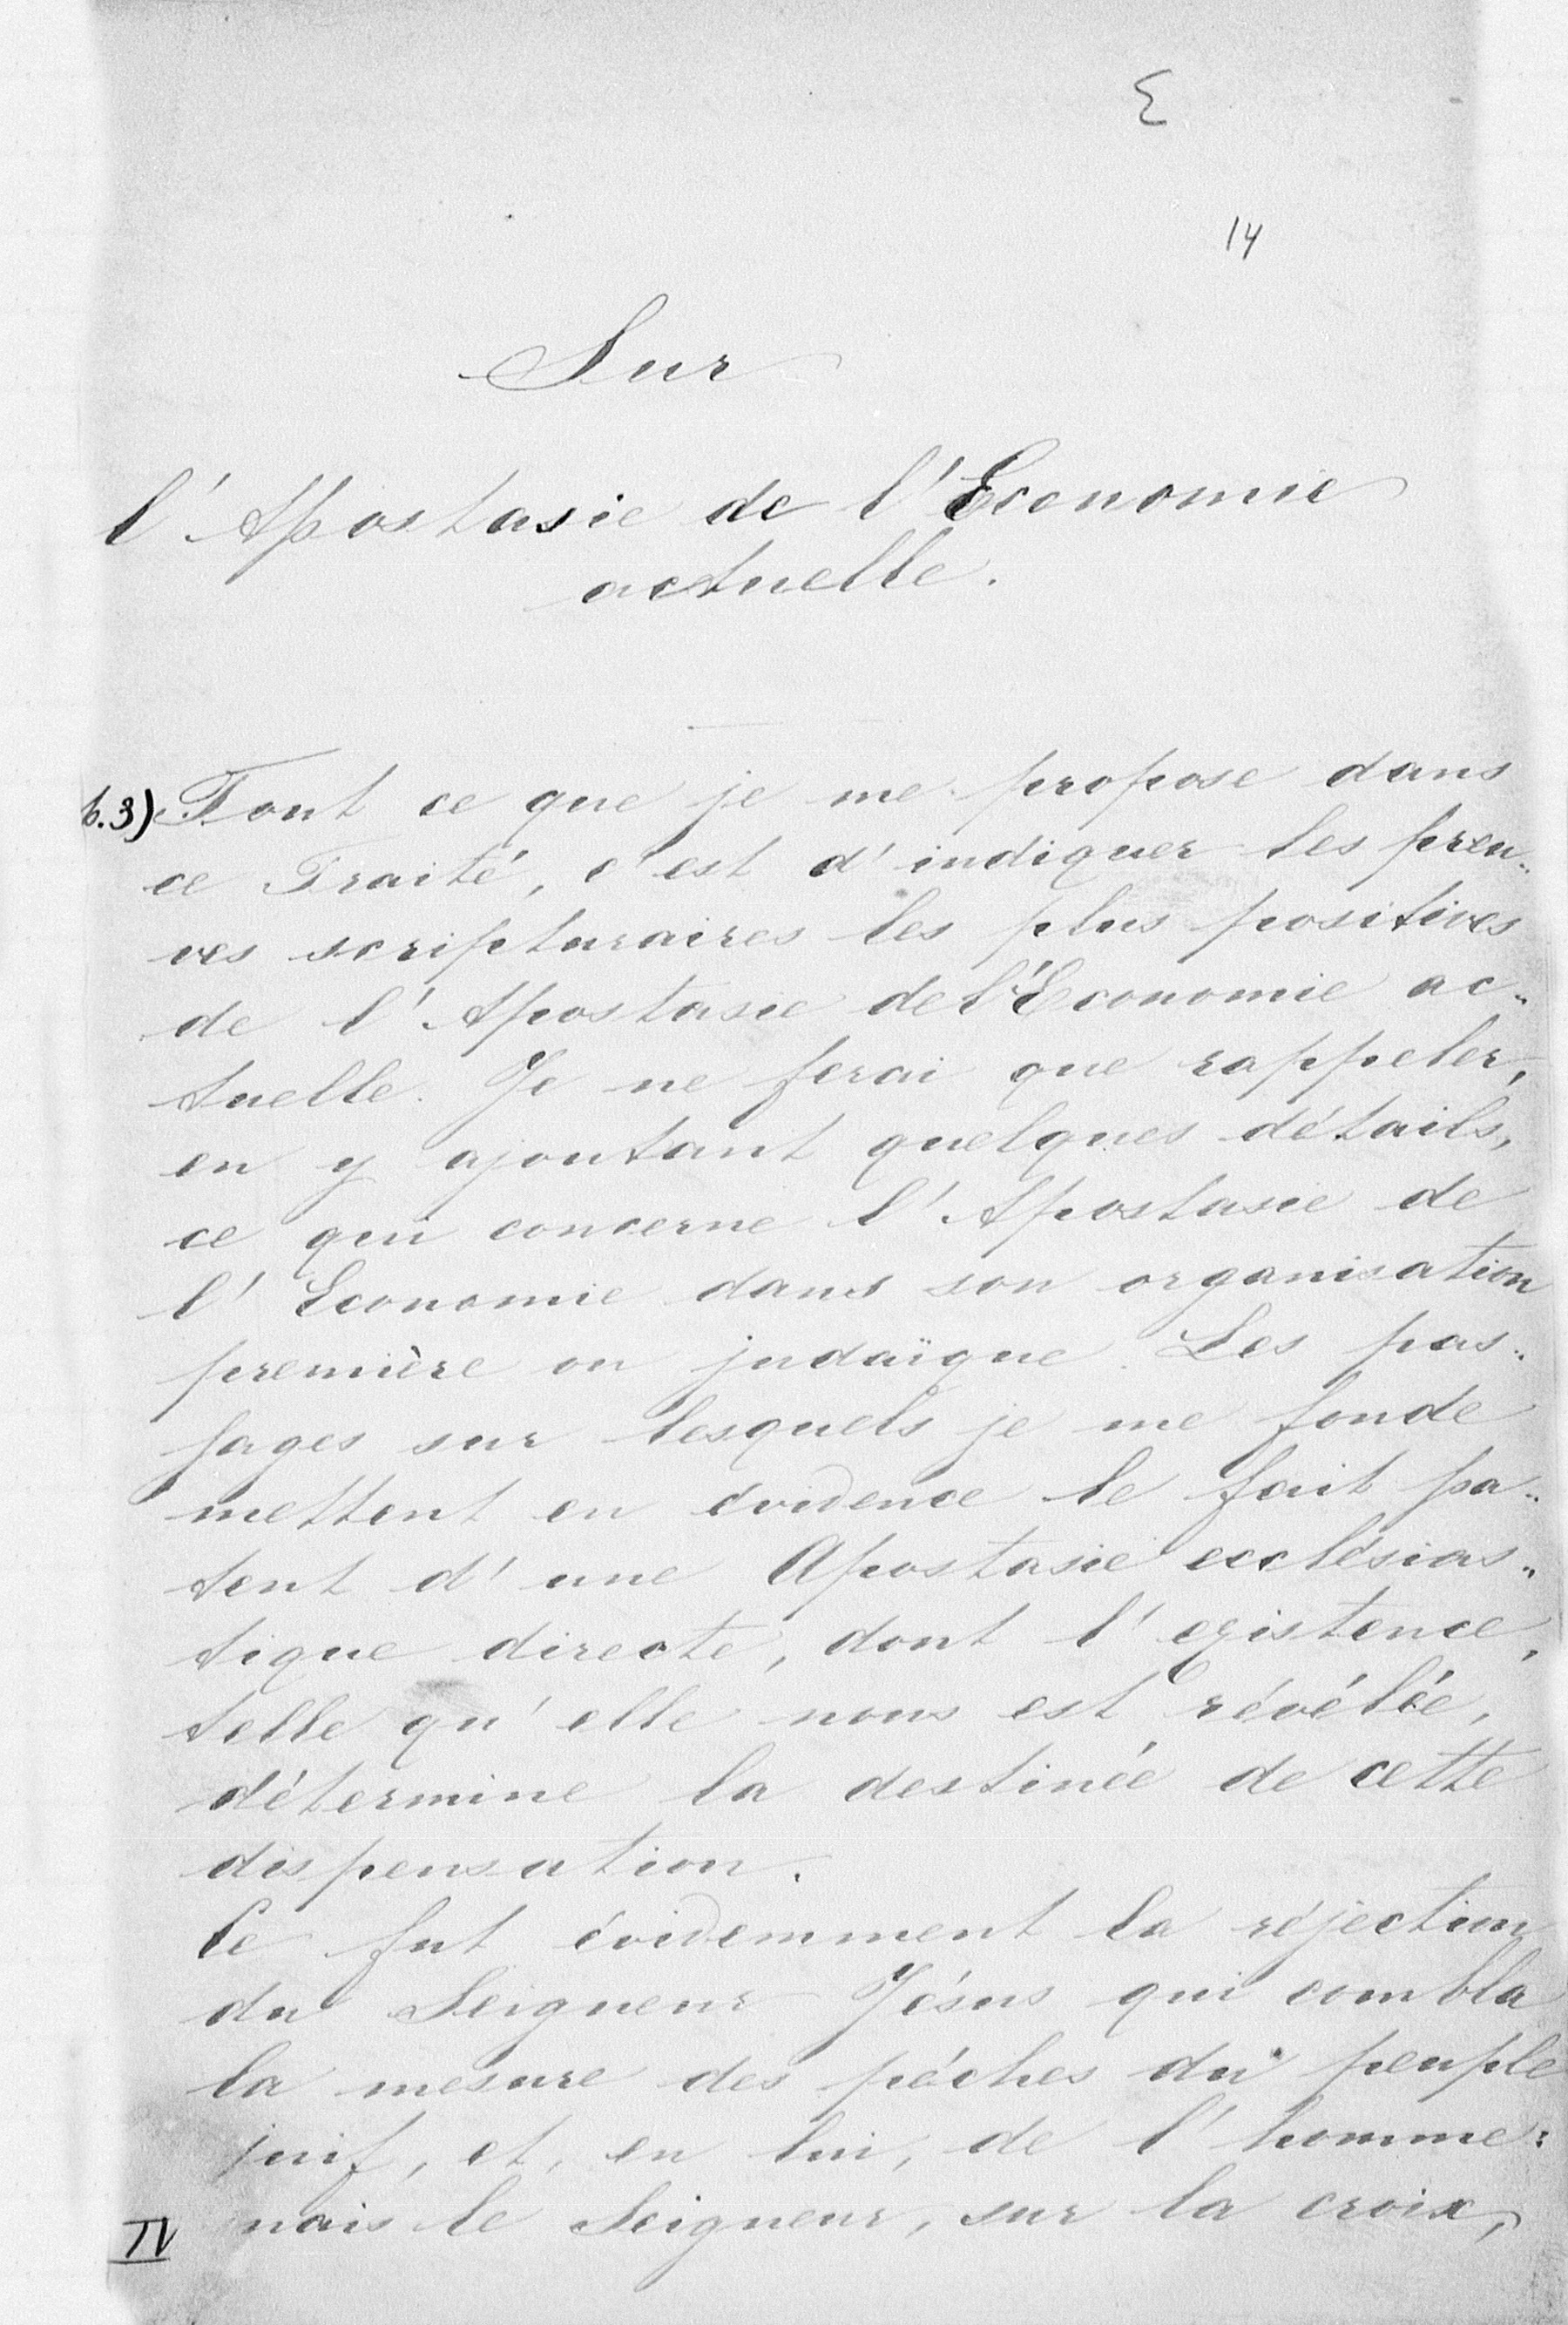 14
Sur
l'Apostasie de l'Economie
actuelle.
p.3) Tout ce que je me propose dans
ce Traité, c'est d'indiquer les preu„
ves scripturaires les plus positives
de l'Apostasie de l'Economie ac„
tuelle. Je ne ferai que rappeler,
en y ajoutant quelques détails,
ce qui concerne l'Apostasie de
l'Economie dans son organisation
première ou judaïque. Les pas„
sages sur lesquels je me fonde
mettent en évidence le fait pa„
tent d'une Apostasie ecclésias„
tique directe, dont l'existence,
telle qu'elle nous est révélée,
détermine la destinée de cette
dispensation.
Ce fut évidemment la réjection
du Seigneur Jésus qui combla
la mesure des péchés du peuple
juif, et, en lui, de l'homme:
mais le Seigneur, sur la croix,
IV